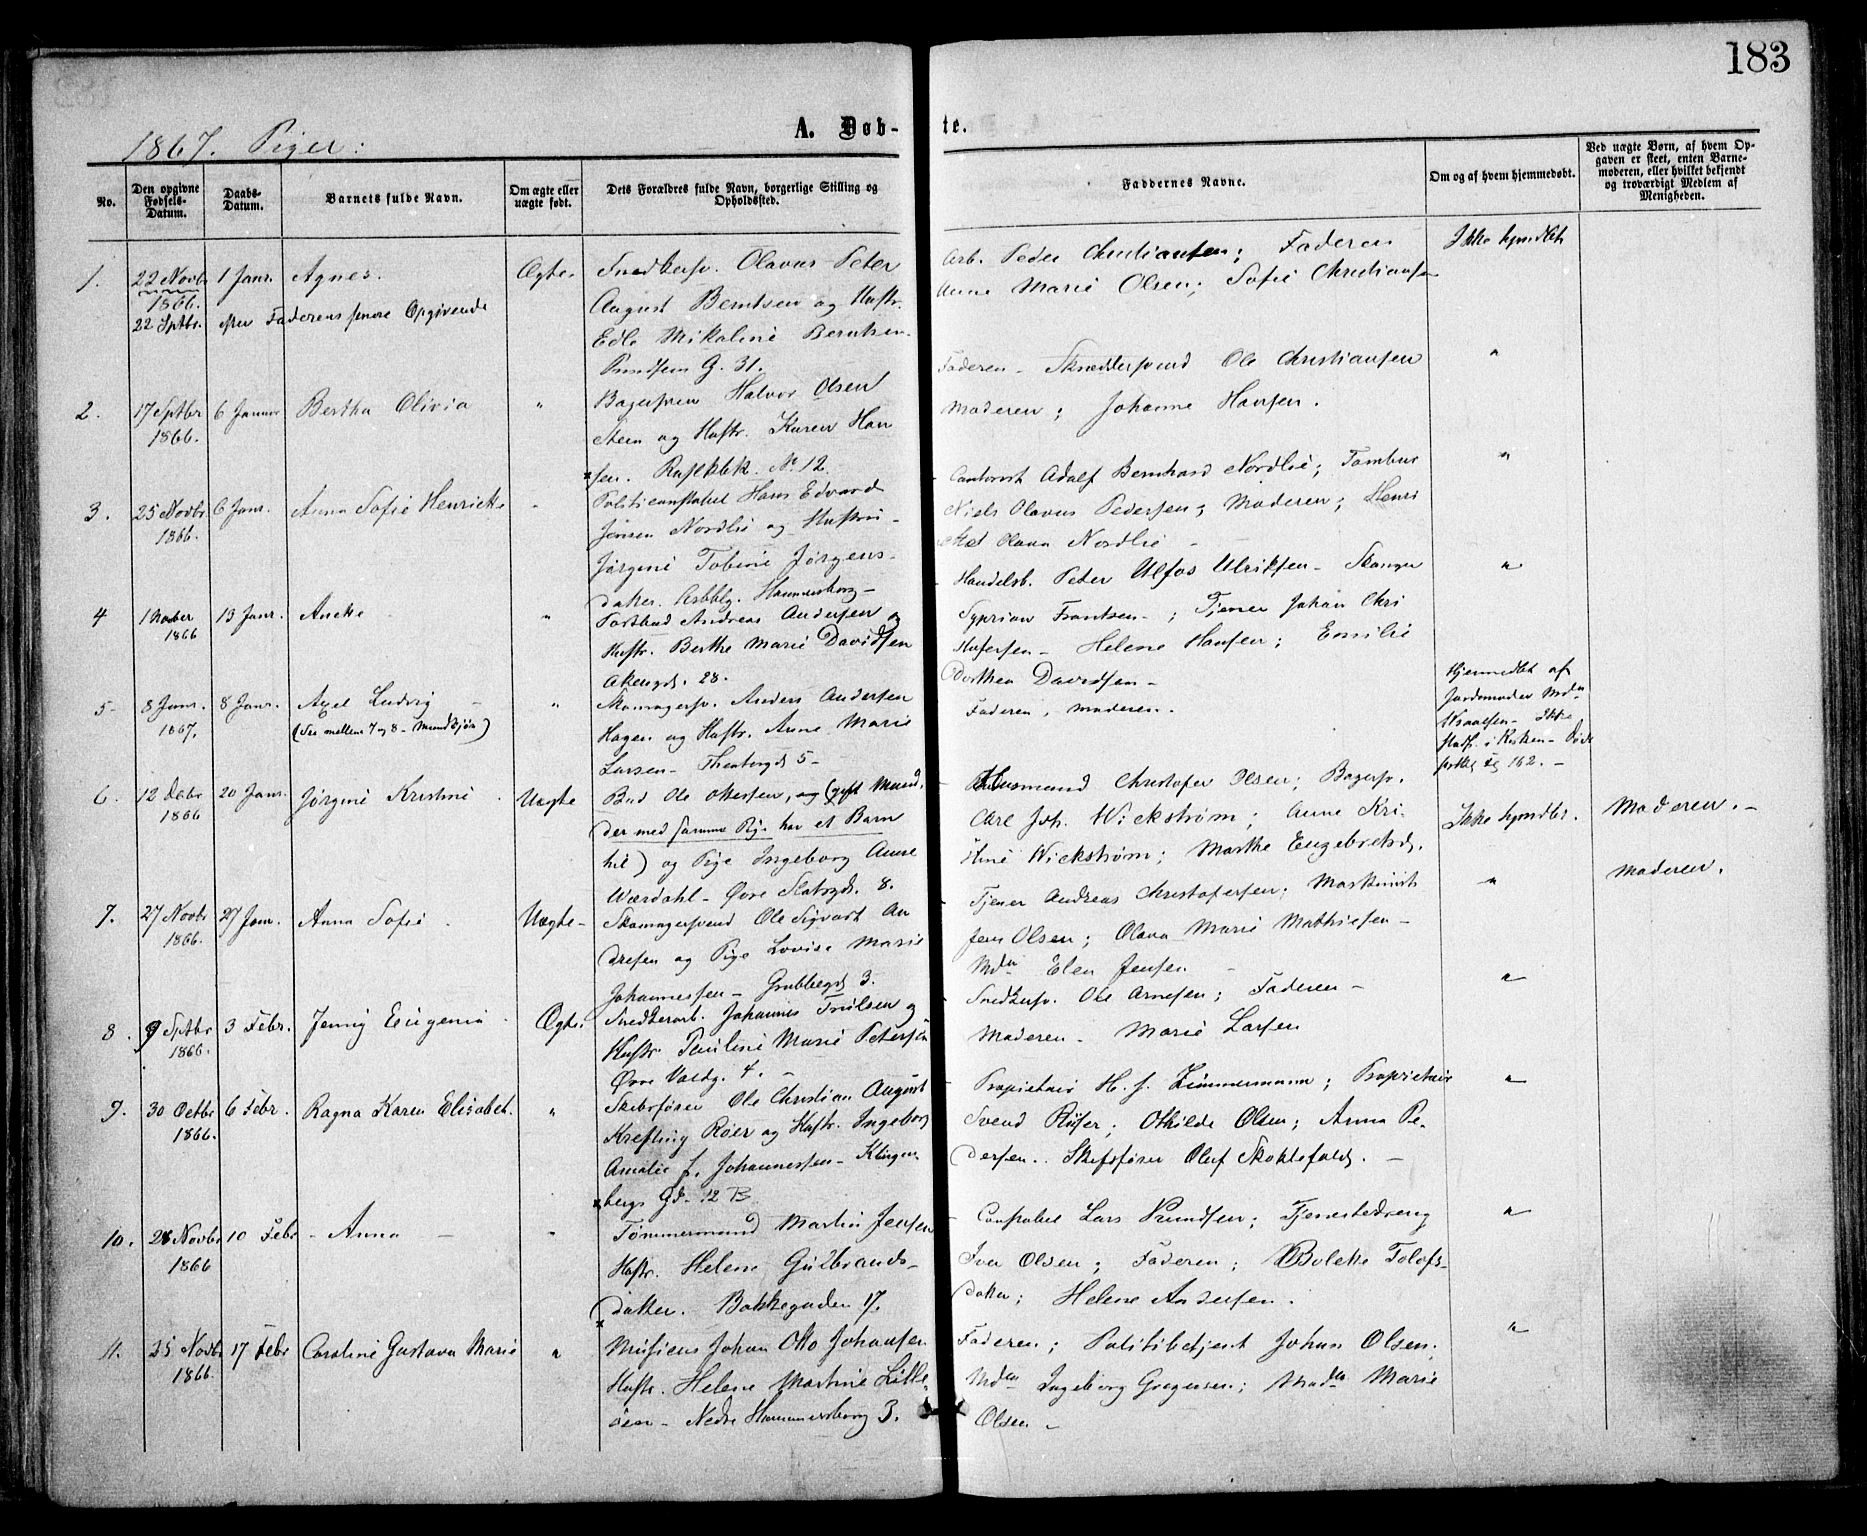 183
A. Døb-te.
1867. Piger:
No.
Den opgivne Fødsels-Datum.
Daabs-Datum.
Barnets fulde Navn.
Om ægte eller uægte født.
Dets Forældres fulde Navn, borgerlige Stilling og Opholdssted.
Faddernes Navne.
Om og af hvem hjemmedøbt.
Ved uægte Børn, af hvem Opgaven er skeet, enten Barnemoderen, eller hvilket bekjendt og troværdigt Medlem af Menigheden.
1. 22 Novbr 1866. 1 Janr. Agnes. Ægte.
22 Sptbr. efter Faderens senere Opgivende
Snedkersv. Olavus Peter
August Berntsen og Hustr.
Edle Mikaline Berntsen
G. 31.
Arb. Peder Christiansen; Faderen
Anne Marie Olsen; Sofie Christiansen
Ikke hjmdbt
2. 17 Sptbr 1866. 6 Januar Bertha Olivia "
Bagersven Halvor Olsen
Steen og Hustr. Karen Han
sen. Ruselkbk. No 12.
Faderen - Skræddersvend Ole Christiansen
Moderen; Johanne Hansen.
"
3. 25 Novbr 1866. 6 Janr. Anna Sofie Henriette "
Politiconstabel Hans Edvard
Jensen Nordlie og Hustru
Jørgine Tobine Jørgens-
datter. Hammersborg -
Cantorist Adolf Bernhard Nordlie; Tambur
Niels Olavus Pedersen; Moderen; Henri
ette Olava Nordlie -
"
4 1866 13 Janr. Anette "
Postbud Andreas Andersen og
Hustr. Berthe Marie Davidsen
Akersgd. 28.
Handelsb. Peter Ulfos Ulriksen - Skomager
Syprian Frantsen -; Tjener Johan Chri
stofersen - Helene Hansen; Emilie
Dorthea Davidsen -
"
5 8 Janr. 1867. 8 Janr. Axel Ludvig - "
(See mellem 7 og 8 - Mandkjøn)
Skomagersv. Anders Andersen
Hagen og Hustr. Anne Marie
Larsen - Theatergd. 5 -
Faderen, Moderen.
Hjemmedbt af
Jordemoder Mdm
- Ikke
stadf. i Kirken - Døde
162. -
6. 12 Debr 1866 20 Janr. Jørgine Kristine. Uægte
Bud Ole Ottesen, og (gift Mand,
der med samme Pige har et Barn
til) og Pige Ingeborg Anne
Værdahl - Øvre Slotsgd. 8.
Husmand Christofer Olsen; Bagersv.
Carl Joh. Wickstrøm; Anne Kri
stine Wickstrøm; Marthe Engebretsd.
Ikke hjmdbt.
Moderen. -
7. 27 Novbr 1866. 27 Janr. Anna Sofie. Uægte -
Skomagersvend Ole Sigvart An
dresen og Pige Lovise Marie
Johannessen - Grubbegd. 3.
Tjener Andreas Christofersen; Maskinist
Jens Olsen; Olava Marie Mathiesen -
Mdm Elen Jensen -
"
Moderen.
8. 9 Sptbr 1866. 3 Febr. Jenny Eugenie. Ægte.
Snedkerarb. Johannes Truelsen og
Hustr. Pauline Marie Petersen
Øvre Voldg. 4. -
Snedkersv. Ole Arnesen; Faderen -
Moderen - Marie Larsen
"
9. 30 Octbr 1866. 6 Febr. Ragna Karen Elisabet. "
Skibsfører Ole Christian August
Krefting Røer og Hustr. Ingeborg
Amalie J. Johannessen - Klingen
bergs Gd. 12 B
Proprietair H. J. Zimmermann; Proprietair
Svend Riiser; Othilde Olsen; Anna Pe-
dersen. Skibsfører Oluf Stoltefald. -
"
10. 28 Novbr 1866 10 Febr. - Anna - "
Tømmermand Martin Jensen
Hustr. Helene Gulbrands-
datter. Bakkegaden 17.
Constabel Lars Knudsen; Tjenestedreng
Iver Olsen; Faderen; Bolette Tolofs-
datter; Helene Andersen.
"
11. 25 Novbr 1866. 17 Febr Caroline Gustava Marie "
Musicus Johan Otto Johansen
Hustr. Helene Martine Lille-
øen - Nedre Hammersborg 3.
Faderen; Politibetjent Johan Olsen;
Mdm Ingeborg Gregersen; Madm Marie
Olsen -
"